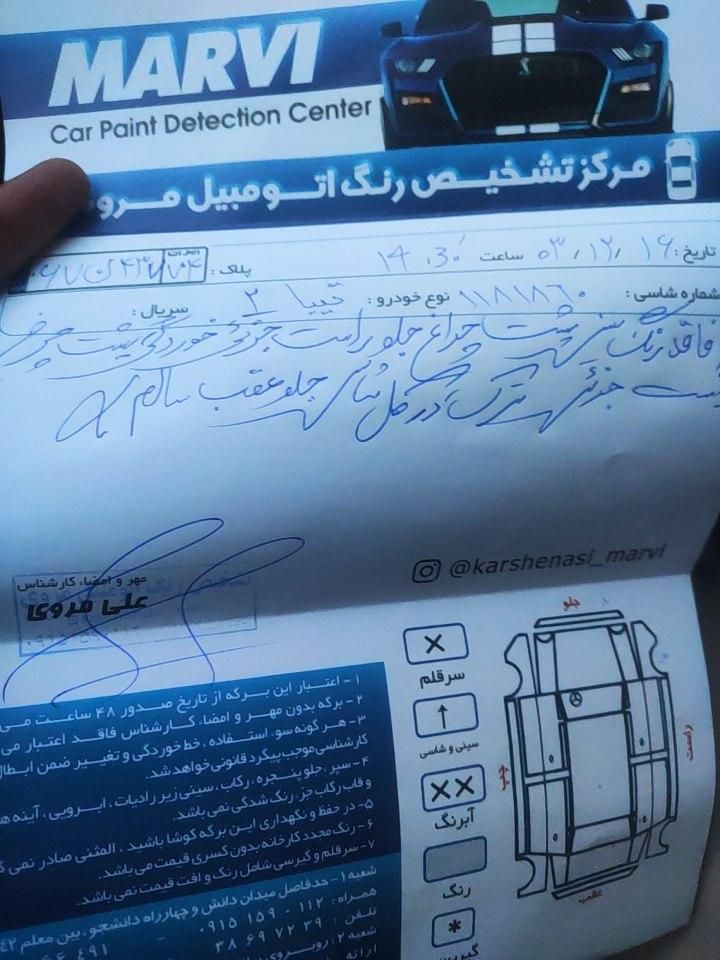 MARVI
Car Paint Detection Center
مرکز تشخیص رنگ اتومبیل مرو
تاریخ: ۰۳/۱۲/۱۶ ساعت ۱۴:۳۰ پلاک:
شماره شاسی: ۱۱۸۱۸۶۰ نوع خودرو: تیبا ۲ سریال:
فاقد رنگ سینی پشت چراغ جلو راست جزئی خوردگی پشت چرخ
جزئی ترک در گل شاسی جلو عقب سالم
@karshenasi_marvi
مهر و امضاء کارشناس
علی مروی
جلو
راست
چپ
عقب
سرقلم
سینی و شاسی
آبرنگ
رنگ
۱- اعتبار این برگه از تاریخ صدور ۴۸ ساعت می
۲- برگه بدون مهر و امضاء کارشناس فاقد اعتبار می
۳- هرگونه سوء استفاده، خط خوردگی و تغییر ضمن ابطال
کارشناسی موجب پیگرد قانونی خواهد شد.
۴- سپر، جلو پنجره، رکاب، سینی زیر رادیات، ابرویی، آینه ها
و قاب رکاب جز، رنگ شدگی نمی باشد.
۵- در حفظ و نگهداری این برگه کوشا باشید، المثنی صادر نمی
۶- رنگ مجدد کارخانه بدون کسری قیمت می باشد.
۷- سرقلم و گیرسی شامل رنگ و افت قیمت نمی باشد.
شعبه ۱- حدفاصل میدان دانش و چهارراه دانشجو، بین معلم
همراه: ۰۹۱۵ ۱۵۹ ۰ ۱۱۲
تلفن: ۳۸ ۶۹ ۷۲ ۳۹
شعبه ۲: روبروی